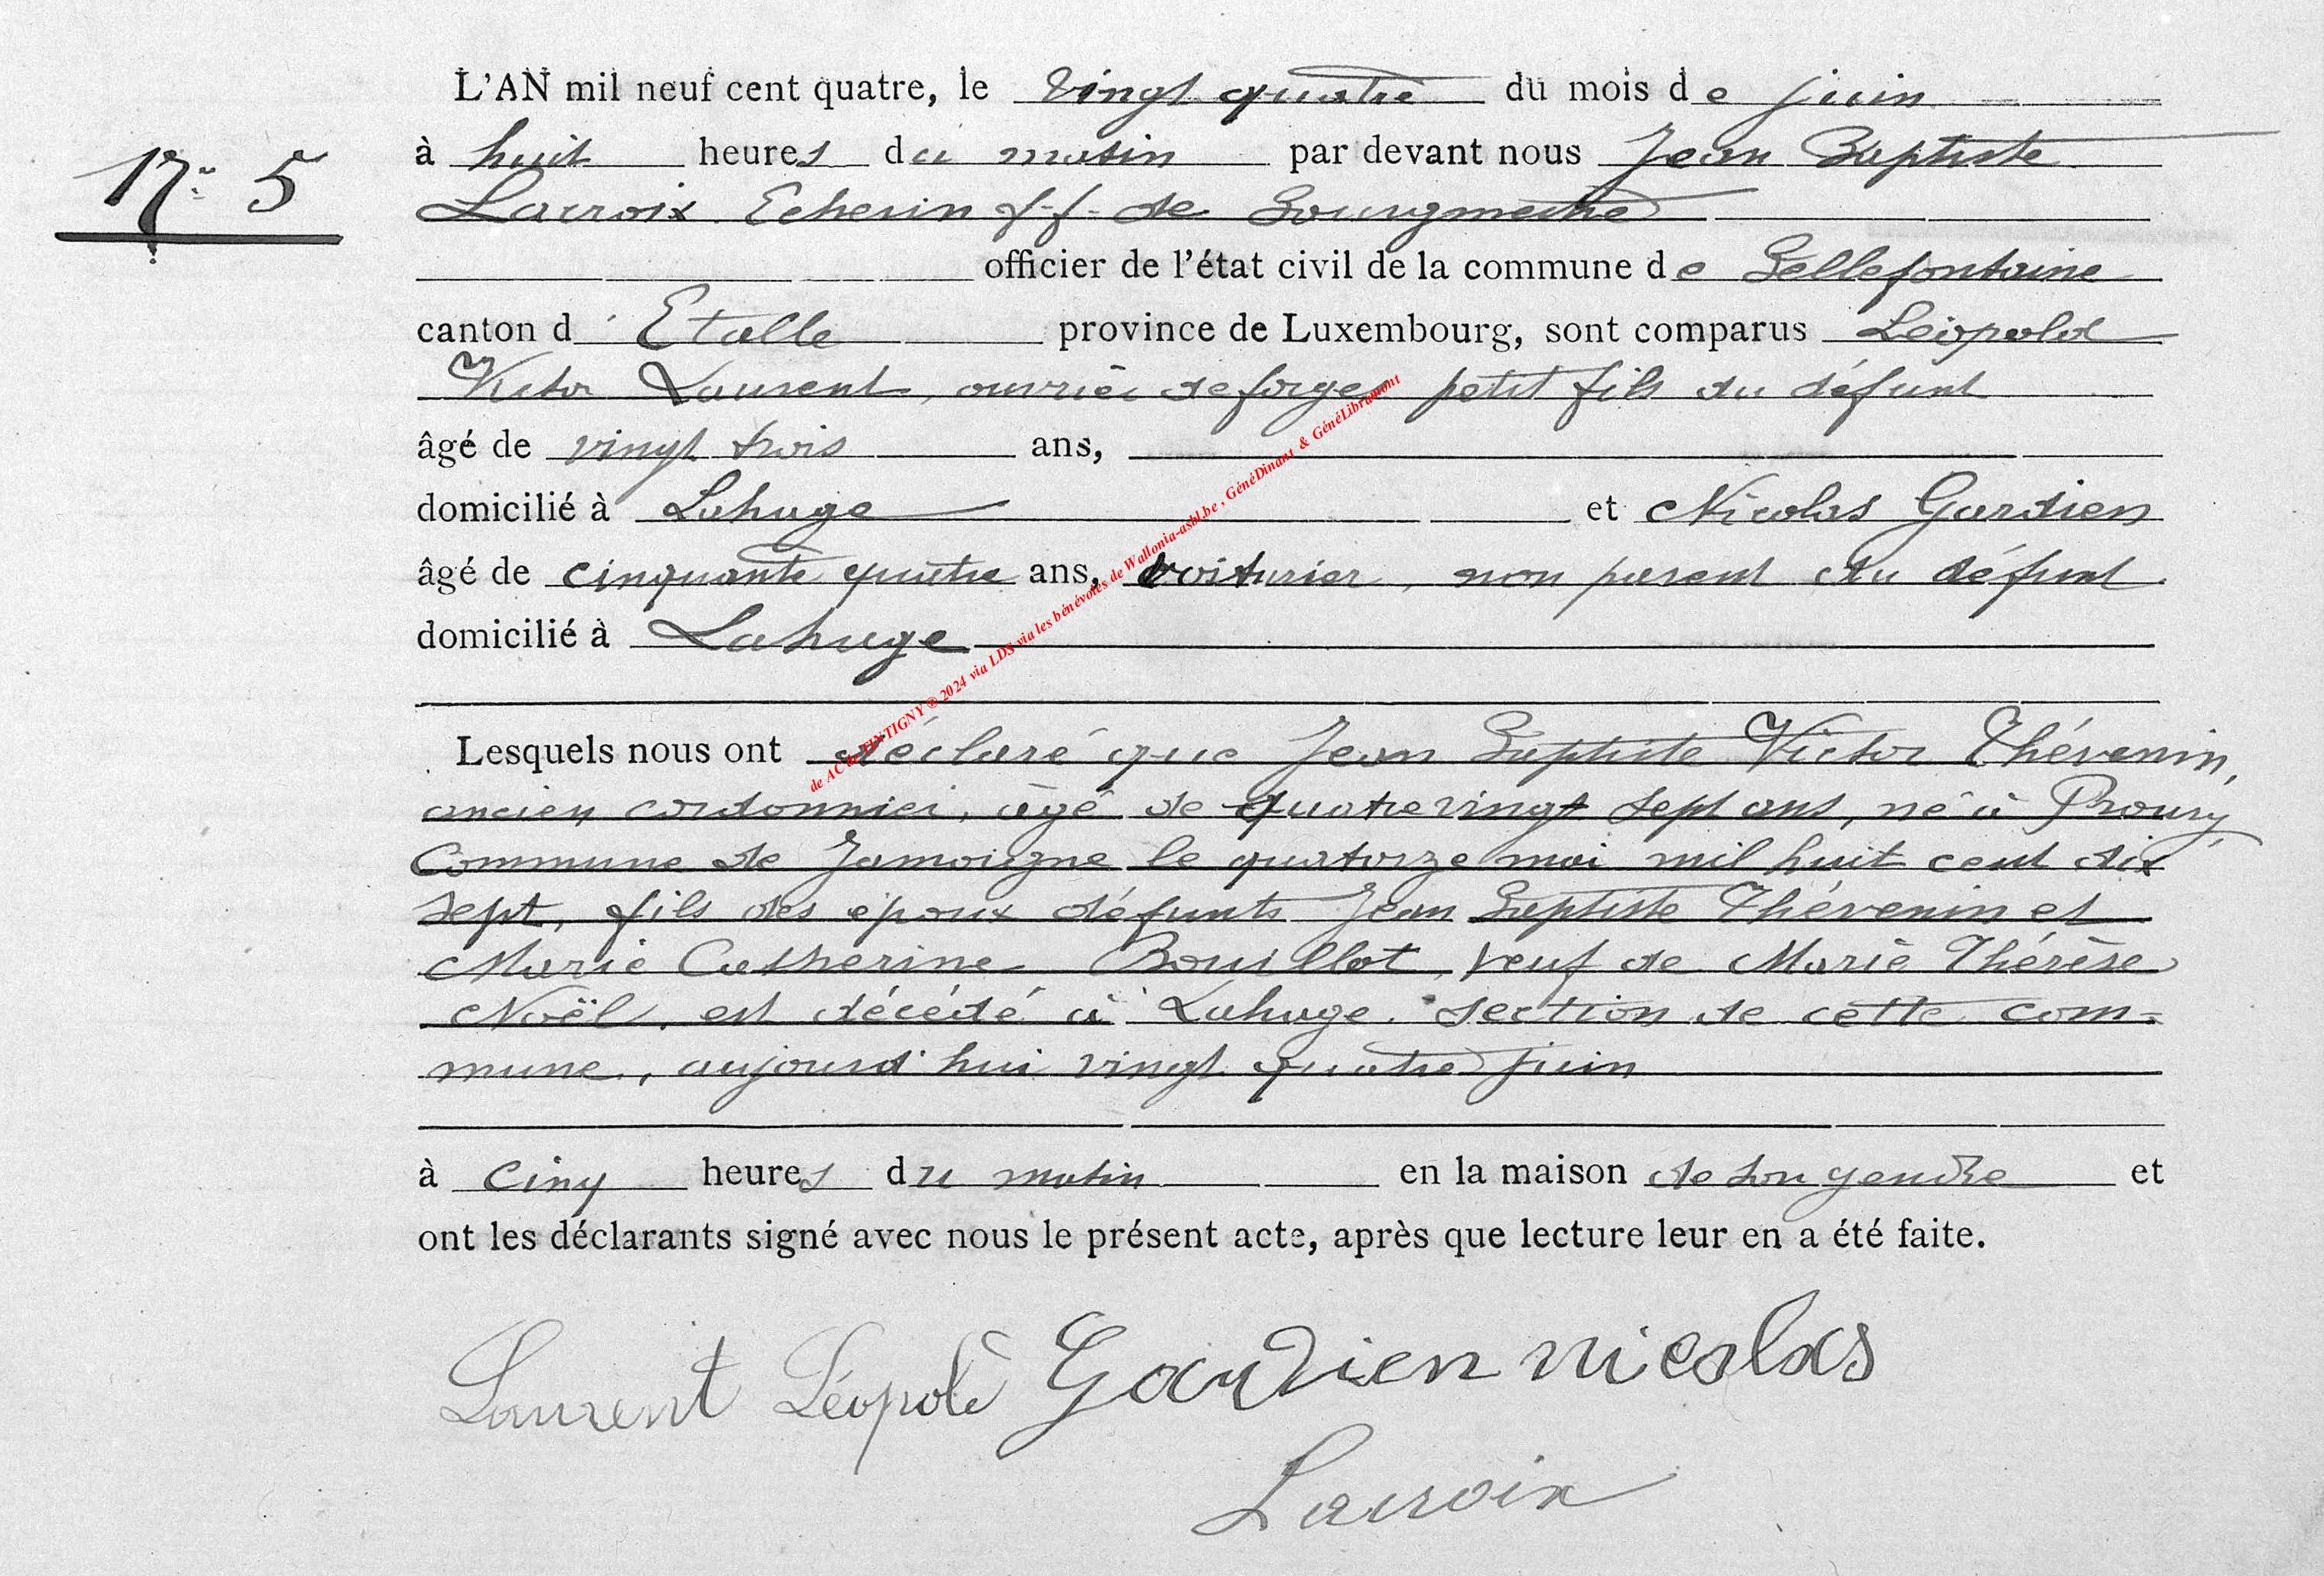 L'AN mil neuf cent quatre, le vingt quatre du mois de juin
N° 5
à huit heures du matin par devant nous Jean Baptiste
Lacroix Echevin f.f. de Bourgmestre
officier de l'état civil de la commune de Bellefontaine
canton d'Etalle province de Luxembourg, sont comparus Léopold
Victor Laurent, ouvrier de forges petit fils du défunt
âgé de vingt trois ans,
domicilié à Lahage et Nicolas Gardien
âgé de cinquante quatre ans, voiturier, non parent du défunt
domicilié à Lahage
Lesquels nous ont déclaré que Jean Baptiste Victor Thévenin,
ancien cordonnier, âgé de quatre vingt sept ans, né à Prouvy,
Commune de Jamoigne le quatorze mai mil huit cent dix
sept, fils des époux défunts Jean Baptiste Thévenin et
Marie Catherine Bouillot, veuf de Marie Thérèse
Noël, est décédé à Lahage, section de cette com=
mune, aujourd'hui vingt quatre juin
à cinq heures du matin en la maison de son gendre et
ont les déclarants signé avec nous le présent acte, après que lecture leur en a été faite.
Laurent Léopold Gardien nicolas
Lacroix
de AC de TINTIGNY ® 2024 via LDS via les bénévoles de Wallonia-asbl.be, GénéDinant & GénéLibramont